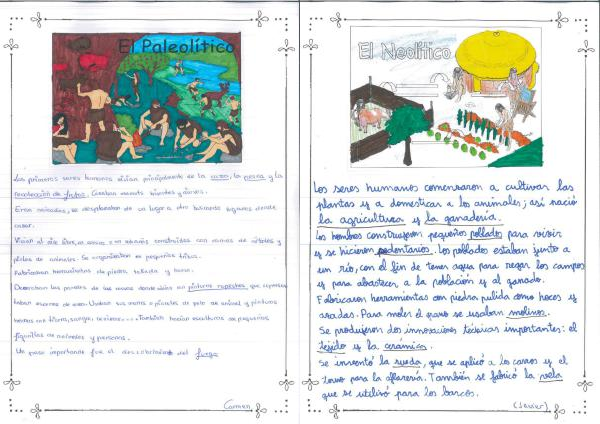 El Paleolítico
Los primeros seres humanos vivían principalmente de la caza, la pesca y la
recolección de frutos.
Eran nómadas, se desplazaban de un lugar a otro buscando lugares donde
cazar.
Vivían al aire libre, en cuevas o en cabañas construidas con ramas de árboles y
pieles de animales. Se organizaban en pequeñas tribus.
Fabricaban herramientas de piedra tallada y hueso.
Decoraban las paredes de las cuevas donde vivían con pinturas rupestres que
También hacían esculturas de pequeñas
figuritas de animales y personas.
Un paso importante fue el descubrimiento del fuego
Carmen
El Neolítico
Los seres humanos comenzaron a cultivar las
plantas y a domesticar a los animales; así nació
la agricultura y la ganadería.
Los hombres construyeron pequeños poblados para vivir
y se hicieron sedentarios. Los poblados estaban junto a
un río, con el fin de tener agua para regar los campos
y para abastecer a la población y al ganado.
Fabricaron herramientas con piedra pulida como hoces y
azadas. Para moler el grano se usaban molinos.
Se produjeron dos innovaciones técnicas importantes: el
tejido y la cerámica.
Se inventó la rueda, que se aplicó a los carros y el
torno para la alfarería. También se fabricó la vela
que se utilizó para los barcos.
(Javier)